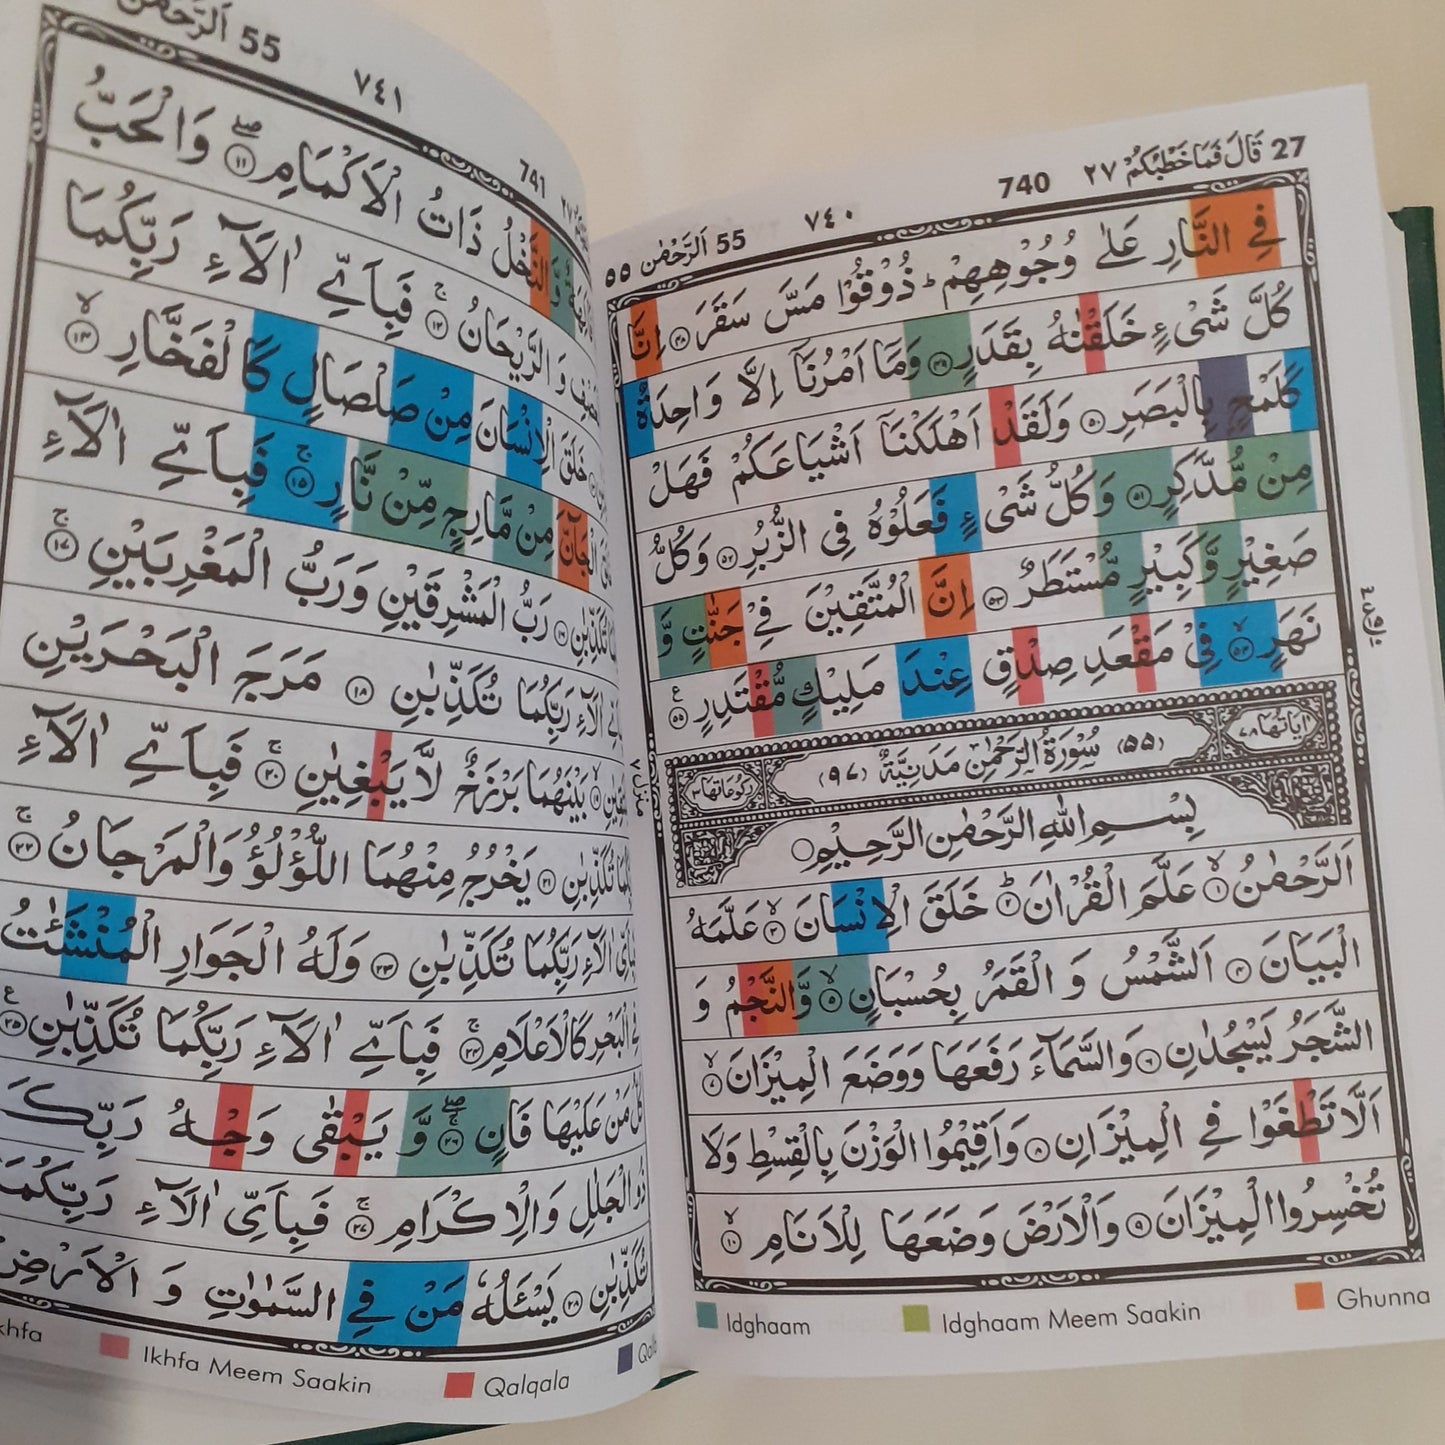 27 قَالَ فَمَاخَطْبُكُمْ ٢٧ 740 ٧٤٠ 55 اَلرَّحْمٰن ٥٥
فِي النَّارِ عَلٰى وُجُوْهِهِمْ ؕ ذُوْقُوْا مَسَّ سَقَرَ ﴿٤٨﴾ اِنَّا
كُلَّ شَىْءٍ خَلَقْنٰهُ بِقَدَرٍ ﴿٤٩﴾ وَمَاۤ اَمْرُنَاۤ اِلَّا وَاحِدَةٌ
كَلَمْحٍۭ بِالْبَصَرِ ﴿٥٠﴾ وَلَقَدْ اَهْلَكْنَاۤ اَشْيَاعَكُمْ فَهَلْ
مِنْ مُّدَّكِرٍ ﴿٥١﴾ وَكُلُّ شَىْءٍ فَعَلُوْهُ فِى الزُّبُرِ ﴿٥٢﴾ وَكُلُّ
صَغِيْرٍ وَّكَبِيْرٍ مُّسْتَطَرٌ ﴿٥٣﴾ اِنَّ الْمُتَّقِيْنَ فِيْ جَنّٰتٍ وَّ
نَهَرٍ ۙ﴿٥٤﴾ فِيْ مَقْعَدِ صِدْقٍ عِنْدَ مَلِيْكٍ مُّقْتَدِرٍ ﴿٥٥﴾ ع
اٰيَاتُهَا ٧٨ (٥٥) سُوْرَةُ الرَّحْمٰنِ مَدَنِيَّةٌ (٩٧) رُكُوْعَاتُهَا ٣
بِسْمِ اللهِ الرَّحْمٰنِ الرَّحِيْمِ
اَلرَّحْمٰنُ ۙ﴿١﴾ عَلَّمَ الْقُرْاٰنَ ؕ﴿٢﴾ خَلَقَ الْاِنْسَانَ ۙ﴿٣﴾ عَلَّمَهُ
الْبَيَانَ ﴿٤﴾ اَلشَّمْسُ وَ الْقَمَرُ بِحُسْبَانٍ ۙ﴿٥﴾ وَّالنَّجْمُ وَ
الشَّجَرُ يَسْجُدٰنِ ﴿٦﴾ وَالسَّمَآءَ رَفَعَهَا وَوَضَعَ الْمِيْزَانَ ۙ﴿٧﴾
اَلَّا تَطْغَوْا فِي الْمِيْزَانِ ﴿٨﴾ وَاَقِيْمُوا الْوَزْنَ بِالْقِسْطِ وَلَا
تُخْسِرُوا الْمِيْزَانَ ﴿٩﴾ وَالْاَرْضَ وَضَعَهَا لِلْاَنَامِ ۙ﴿١٠﴾
Idghaam Idghaam Meem Saakin Ghunna
741 ٧٤١ 55 اَلرَّحْمٰن
وَّالنَّخْلُ ذَاتُ الْاَكْمَامِ ۖ﴿١١﴾ وَالْحَبُّ
وَ الرَّيْحَانُ ۚ﴿١٢﴾ فَبِاَيِّ اٰلَآءِ رَبِّكُمَا
خَلَقَ الْاِنْسَانَ مِنْ صَلْصَالٍ كَالْفَخَّارِ ۙ﴿١٤﴾
الْجَآنَّ مِنْ مَّارِجٍ مِّنْ نَّارٍ ۚ﴿١٥﴾ فَبِاَيِّ اٰلَآءِ
تُكَذِّبٰنِ ﴿١٦﴾ رَبُّ الْمَشْرِقَيْنِ وَرَبُّ الْمَغْرِبَيْنِ ۚ﴿١٧﴾
اٰلَآءِ رَبِّكُمَا تُكَذِّبٰنِ ﴿١٨﴾ مَرَجَ الْبَحْرَيْنِ
ۙ﴿١٩﴾ بَيْنَهُمَا بَرْزَخٌ لَّا يَبْغِيٰنِ ۚ﴿٢٠﴾ فَبِاَيِّ اٰلَآءِ
تُكَذِّبٰنِ ﴿٢١﴾ يَخْرُجُ مِنْهُمَا اللُّؤْلُؤُ وَالْمَرْجَانُ ۚ﴿٢٢﴾
فَبِاَيِّ اٰلَآءِ رَبِّكُمَا تُكَذِّبٰنِ ﴿٢٣﴾ وَلَهُ الْجَوَارِ الْمُنْشَئٰتُ
فِى الْبَحْرِ كَالْاَعْلَامِ ۚ﴿٢٤﴾ فَبِاَيِّ اٰلَآءِ رَبِّكُمَا تُكَذِّبٰنِ ﴿٢٥﴾ ع
كُلُّ مَنْ عَلَيْهَا فَانٍ ۚۖ﴿٢٦﴾ وَّ يَبْقٰى وَجْهُ رَبِّكَ
ذُو الْجَلٰلِ وَالْاِكْرَامِ ۚ﴿٢٧﴾ فَبِاَيِّ اٰلَآءِ رَبِّكُمَا
تُكَذِّبٰنِ ﴿٢٨﴾ يَسْـَٔلُهٗ مَنْ فِى السَّمٰوٰتِ وَ الْاَرْضِ
منزل ٧
khfa Ikhfa Meem Saakin Qalqala